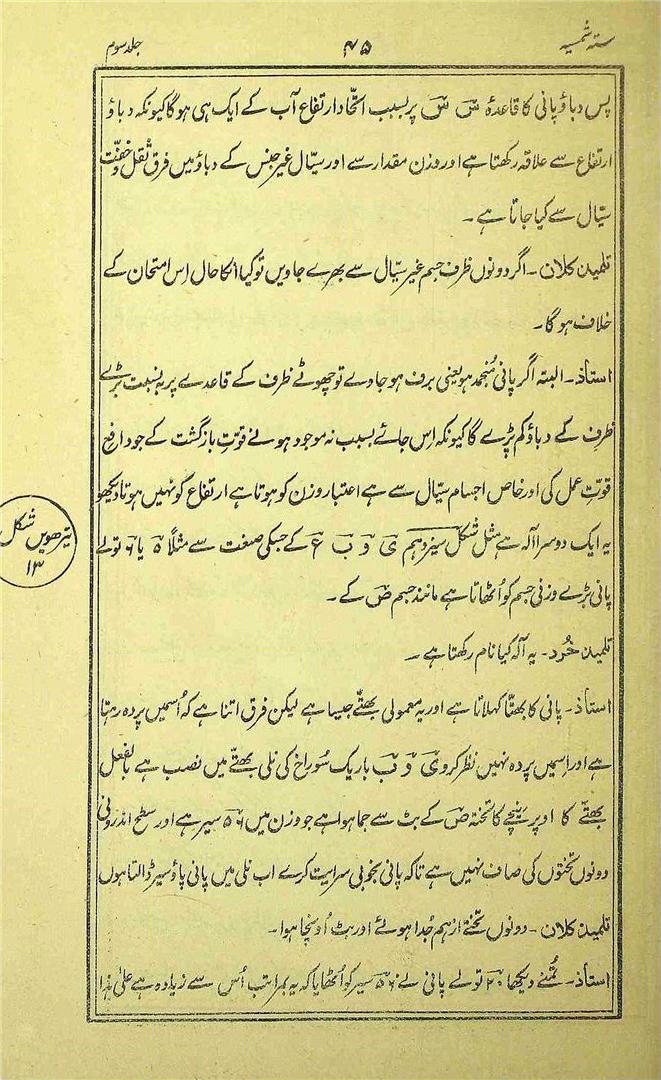 ستہ شمسیہ ۴۵ جلد سوم
پس دباؤ پانی کا قاعدۂ سؔ سؔ پر بسبب اتحاد ارتفاع آب کے ایک ہی ہوگا کیونکہ دباؤ
ارتفاع سے علاقہ رکھتا ہے اور وزن مقدار سے اور سیّال غیر جنس کے دباؤ میں فرق ثقل و خفّت
سیّال سے کیا جاتا ہے ۔
تلمیذ کلان ۔ اگر دونوں ظرف جسم غیر سیّال سے بھرے جاویں تو کیا انکا حال اس امتحان کے
خلاف ہوگا ۔
استاذ ۔ البتہ اگر پانی مُنجمد ہو یعنی برف ہو جاوے تو چھوٹے ظرف کے قاعدے پر بہ نسبت بڑے
ظرف کے دباؤ کم پڑے گا کیونکہ اس جائے بسبب نہ موجود ہونے قوّتِ بازگشت کے جو دافع
قوّتِ عمل کی اور خاص اجسام سیّال سے ہے اعتبار وزن کو ہوتا ہے ارتفاع کو نہیں ہوتا دیکھو
یہ ایک دوسرا آلہ ہے مثل شکل سیزدہم یؔ وؔ بؔ عؔ کے جسکی صنعت سے مثلاً ۵ یا ۶ تولے
پانی بڑے وزنی جسم کو اُٹھاتا ہے مانند جسم صؔ کے ۔
تلمیذ خُرد ۔ یہ آلہ کیا نام رکھتا ہے ۔
استاذ ۔ پانی کا بھتّا کہلاتا ہے اور یہ معمولی بھتّے جیسا ہے لیکن فرق اتنا ہے کہ اُسمیں پردہ رہتا
ہے اور اِسمیں پردہ نہیں نظر کرو یؔ وؔ بؔ باریک سُوراخ کی نلی بھتّے میں نصب ہے بالفعل
بھتّے کا اوپر نیچے کا تختہ صؔ کے بٹ سے جما ہوا ہے جو وزن میں ۵۶ سیر ہے اور سطح اندرونی
دونوں تختوں کی صاف نہیں ہے تاکہ پانی بخوبی سرایت کرے اب نلی میں پانی پاؤ سیر ڈالتا ہوں
تلمیذ کلان ۔ دونوں تختے ازہم جُدا ہوئے اور بٹ اُونچا ہوا ۔
استاذ ۔ تُمنے دیکھا ۲۰ تولے پانی نے ۵۶ سیر کو اُٹھایا کہ یہ بمراتب اُس سے زیادہ ہے علیٰ ہذا
تیرھویں شکل
۱۳